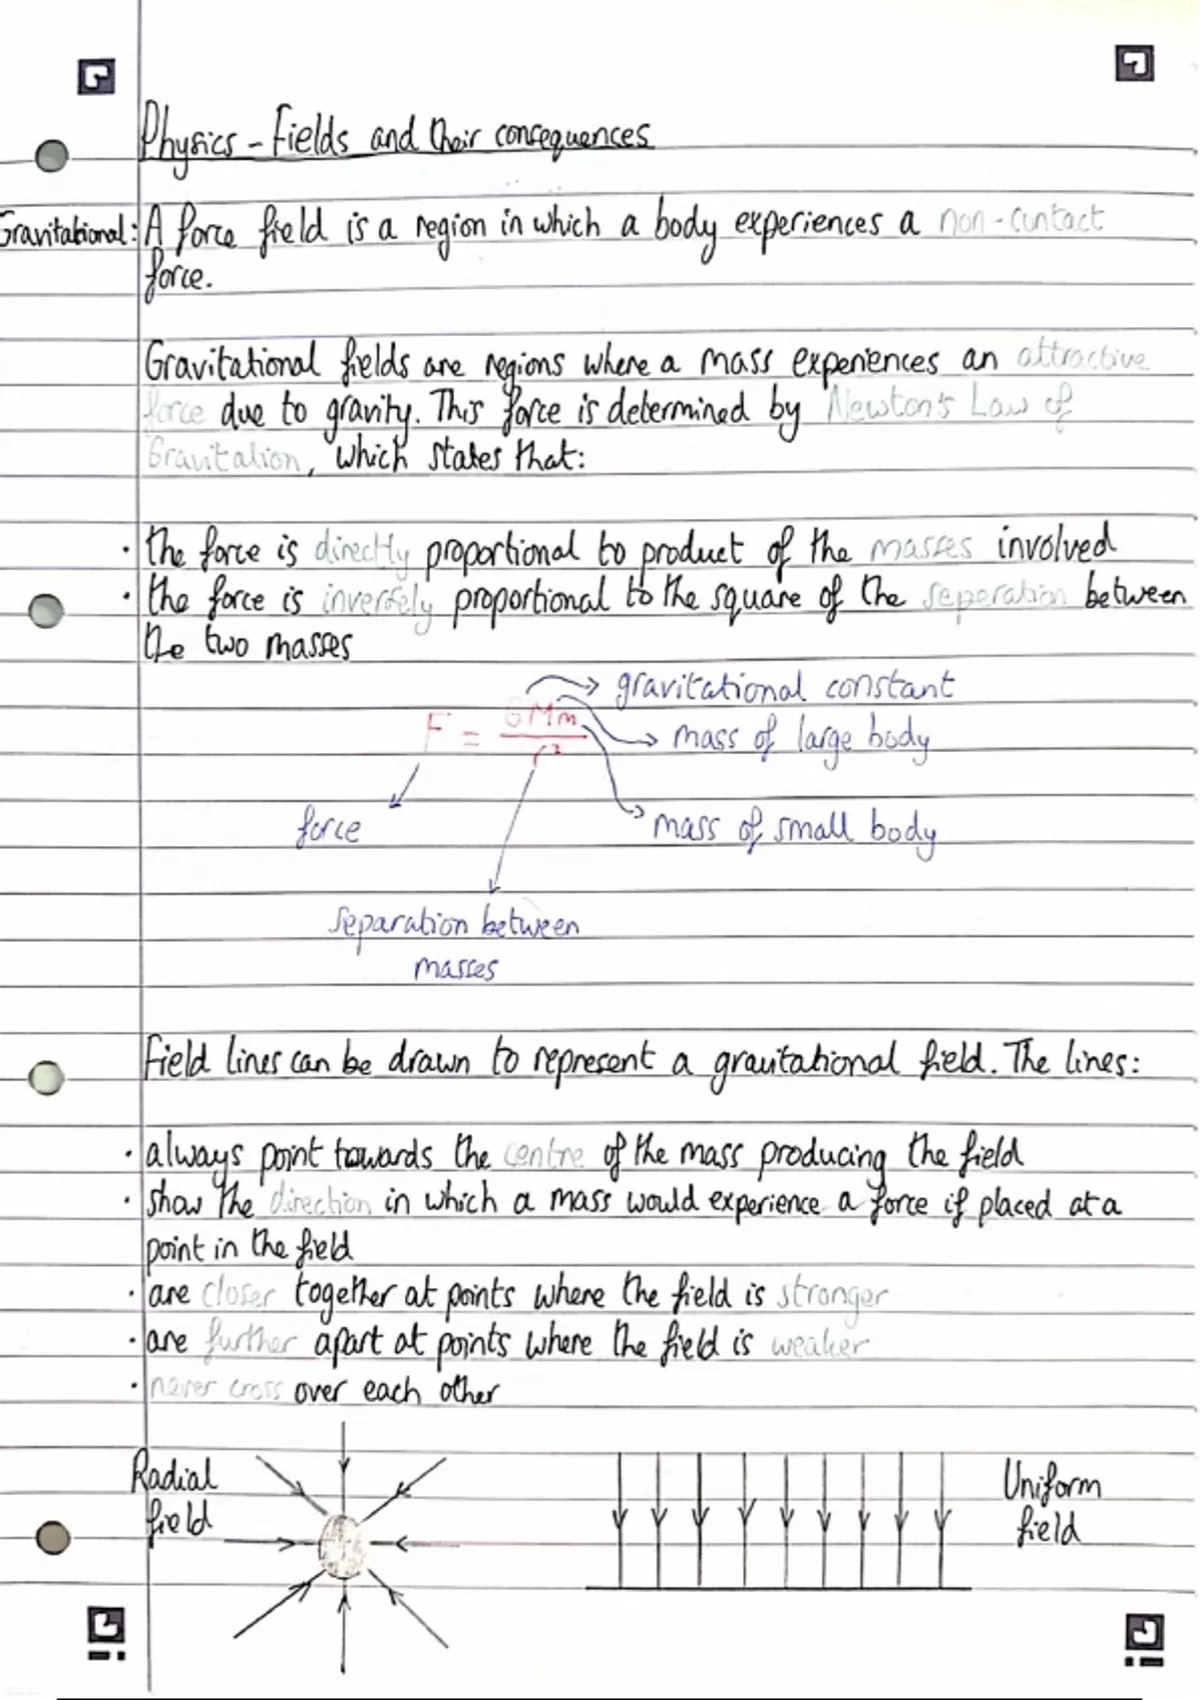 Physics - Fields and their consequences
Gravitational: A force field is a region in which a body experiences a non-contact
force.
Gravitational fields are regions where a mass experiences an attractive
force due to gravity. This force is determined by Newton's Law of
Gravitation, which states that:
· the force is directly proportional to product of the masses involved
· the force is inversely proportional to the square of the seperation between
the two masses
gravitational constant
F = GMm
r²
mass of large body
force
mass of small body
separation between
masses
Field lines can be drawn to represent a gravitational field. The lines:
· always point towards the centre of the mass producing the field
· show the direction in which a mass would experience a force if placed at a
point in the field
· are closer together at points where the field is stronger
· are further apart at points where the field is weaker
· never cross over each other
Radial
field
Uniform
field